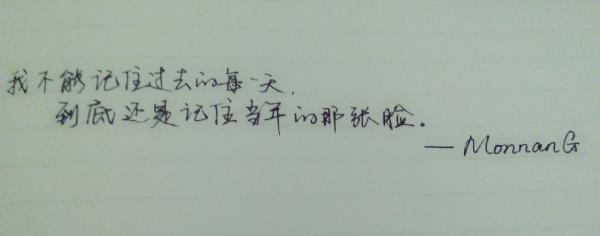 我不能记住过去的每一天,
到底还是记住当年的那张脸。
— MonnanG